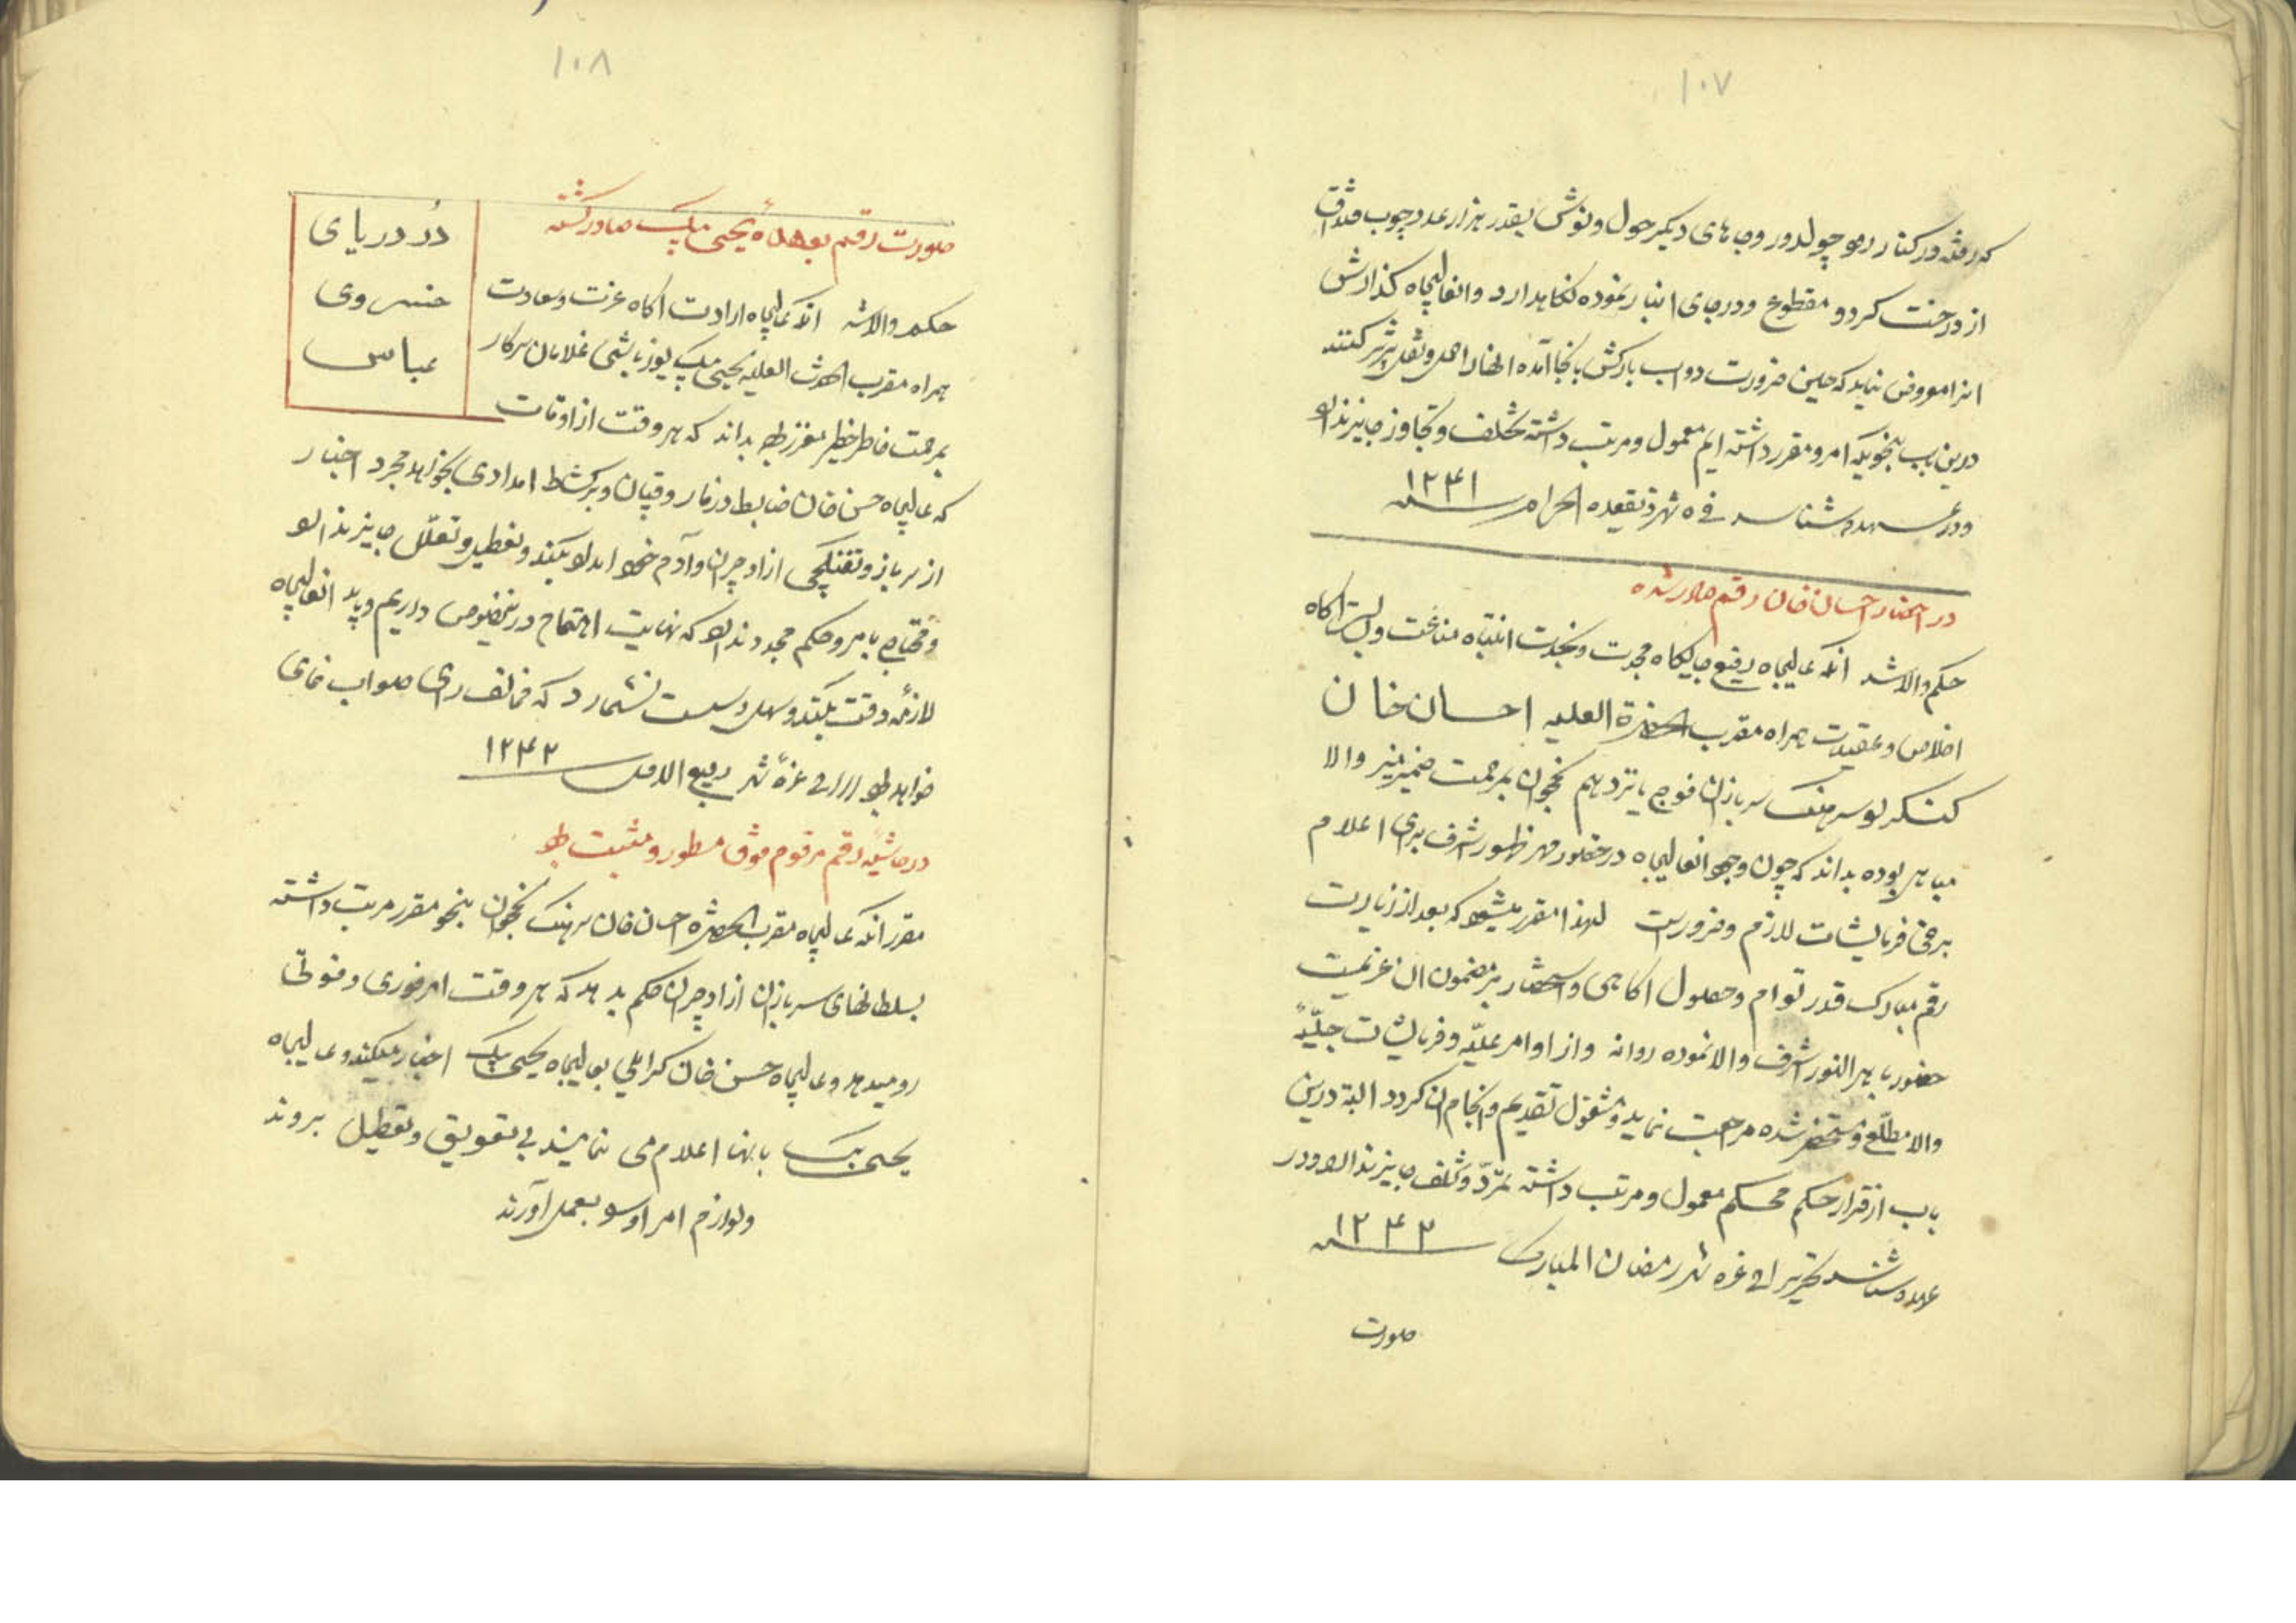 ۱۰۷
که رفته در کنار رمو چولدور و جاهای دیگر حول و نوش بقدر هزار عدد چوب قنداق
از درخت گردو مقطوع و در جای انبار نموده نگاهدارد و انعالیجاه گذارش
انرا معروض نماید که حین ضرورت دواب بارکش بانجا آمده انها را حمل و نقل به تبریز کنند
درین باب بنحویکه امر و مقرر داشته ایم معمول و مرتب داشته تخلف و تجاوز جایز نداند
و در عهده شناسد فی ۵ شهر ذیقعده الحرام سنه ۱۲۴۱
در احضار احسان خان رقم صادر شده
حکم والا شد انکه عالیجاه رفیع جایگاه مجدت و نجدت انتباه مناعت و بسالت اکاه
اخلاص و عقیدت همراه مقرب الحضرة العلیه احسان خان
کنگرلو سرهنگ سربازان فوج پانزدهم نخجوان بمرحمت ضمیر منیر والا
مباهی بوده بداند که چون وجود انعالیجاه در حضور مهر ظهور اشرف برای اعلام
برخی فرمایشات لازم و ضرورست لهذا مقرر میشود که بعد از زیارت
رقم مبارک قدر توام و حصول اکاهی و استحضار بر مضمون ان عزیمت
حضور باهر النور اشرف والا نموده روانه و از اوامر علیّه و فرمایشات جلیّهٔ
والا مطلع و مستحضر شده مراجعت نماید و مشغول تقدیم و انجام ان گردد البته درین
باب از قرار حکم محکم معمول و مرتب داشته تمرّد و تخلف جایز نداند و در
عهده شناسد تحریرا فی غره شهر رمضان المبارک سنه ۱۲۴۲
صورت
۱۰۸
صورت رقم بعهدهٔ یحیی بیک صادر گشته
دُر دریای
خسروی
عباس
حکم والا شد انکه عالیجاه ارادت اکاه عزت و سعادت
همراه مقرب الحضرت العلیه یحیی بیک یوزباشی غلامان سرکار
بمرحمت خاطر خطیر معزز بوده بداند که هر وقت از اوقات
که عالیجاه حسن خان ضابط دزمار و قپان و برکشاط امدادی بخواهد مجرد اخبار
از سرباز و تفنکچی ازادجیران و آدم خود امداد بکند و تعطیل و تعلّل جایز نداند
و محتاج بامر و حکم مجدد نداند که نهایت اهتمام درینخصوص داریم و باید انعالیجاه
لازمهٔ دقت بکند و سهل و سست نشمارد که مخالف رای صواب نمای
خواهد بود تحریرا فی غرّهٔ شهر ربیع الاول سنه ۱۲۴۲
در حاشیهٔ رقم مرقوم فوق مسطور و مثبت بود
مقرر انکه عالیجاه مقرب الحضره احسان خان سرهنگ نخجوان بنحو مقرر مرتب داشته
بسلطانهای سربازان ازادجیران حکم بدهد که هر وقت امر ضروری و فوتی
رو میدهد و عالیجاه حسن خان کرایلی بعالیجاه یحیی بیک اخبار میکند و عالیجاه
یحیی بیک بانها اعلام می نمایند بی تعویق و تعطیل بروند
و لوازم امر او را بعمل آورند